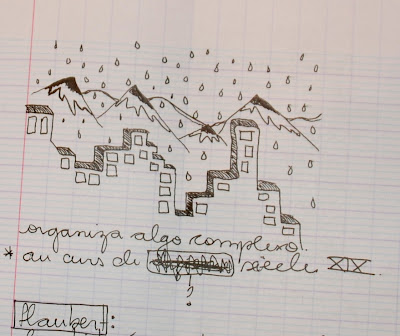 organiza algo complexo.
* au curs du siècle XIX.
?
Flaubert: